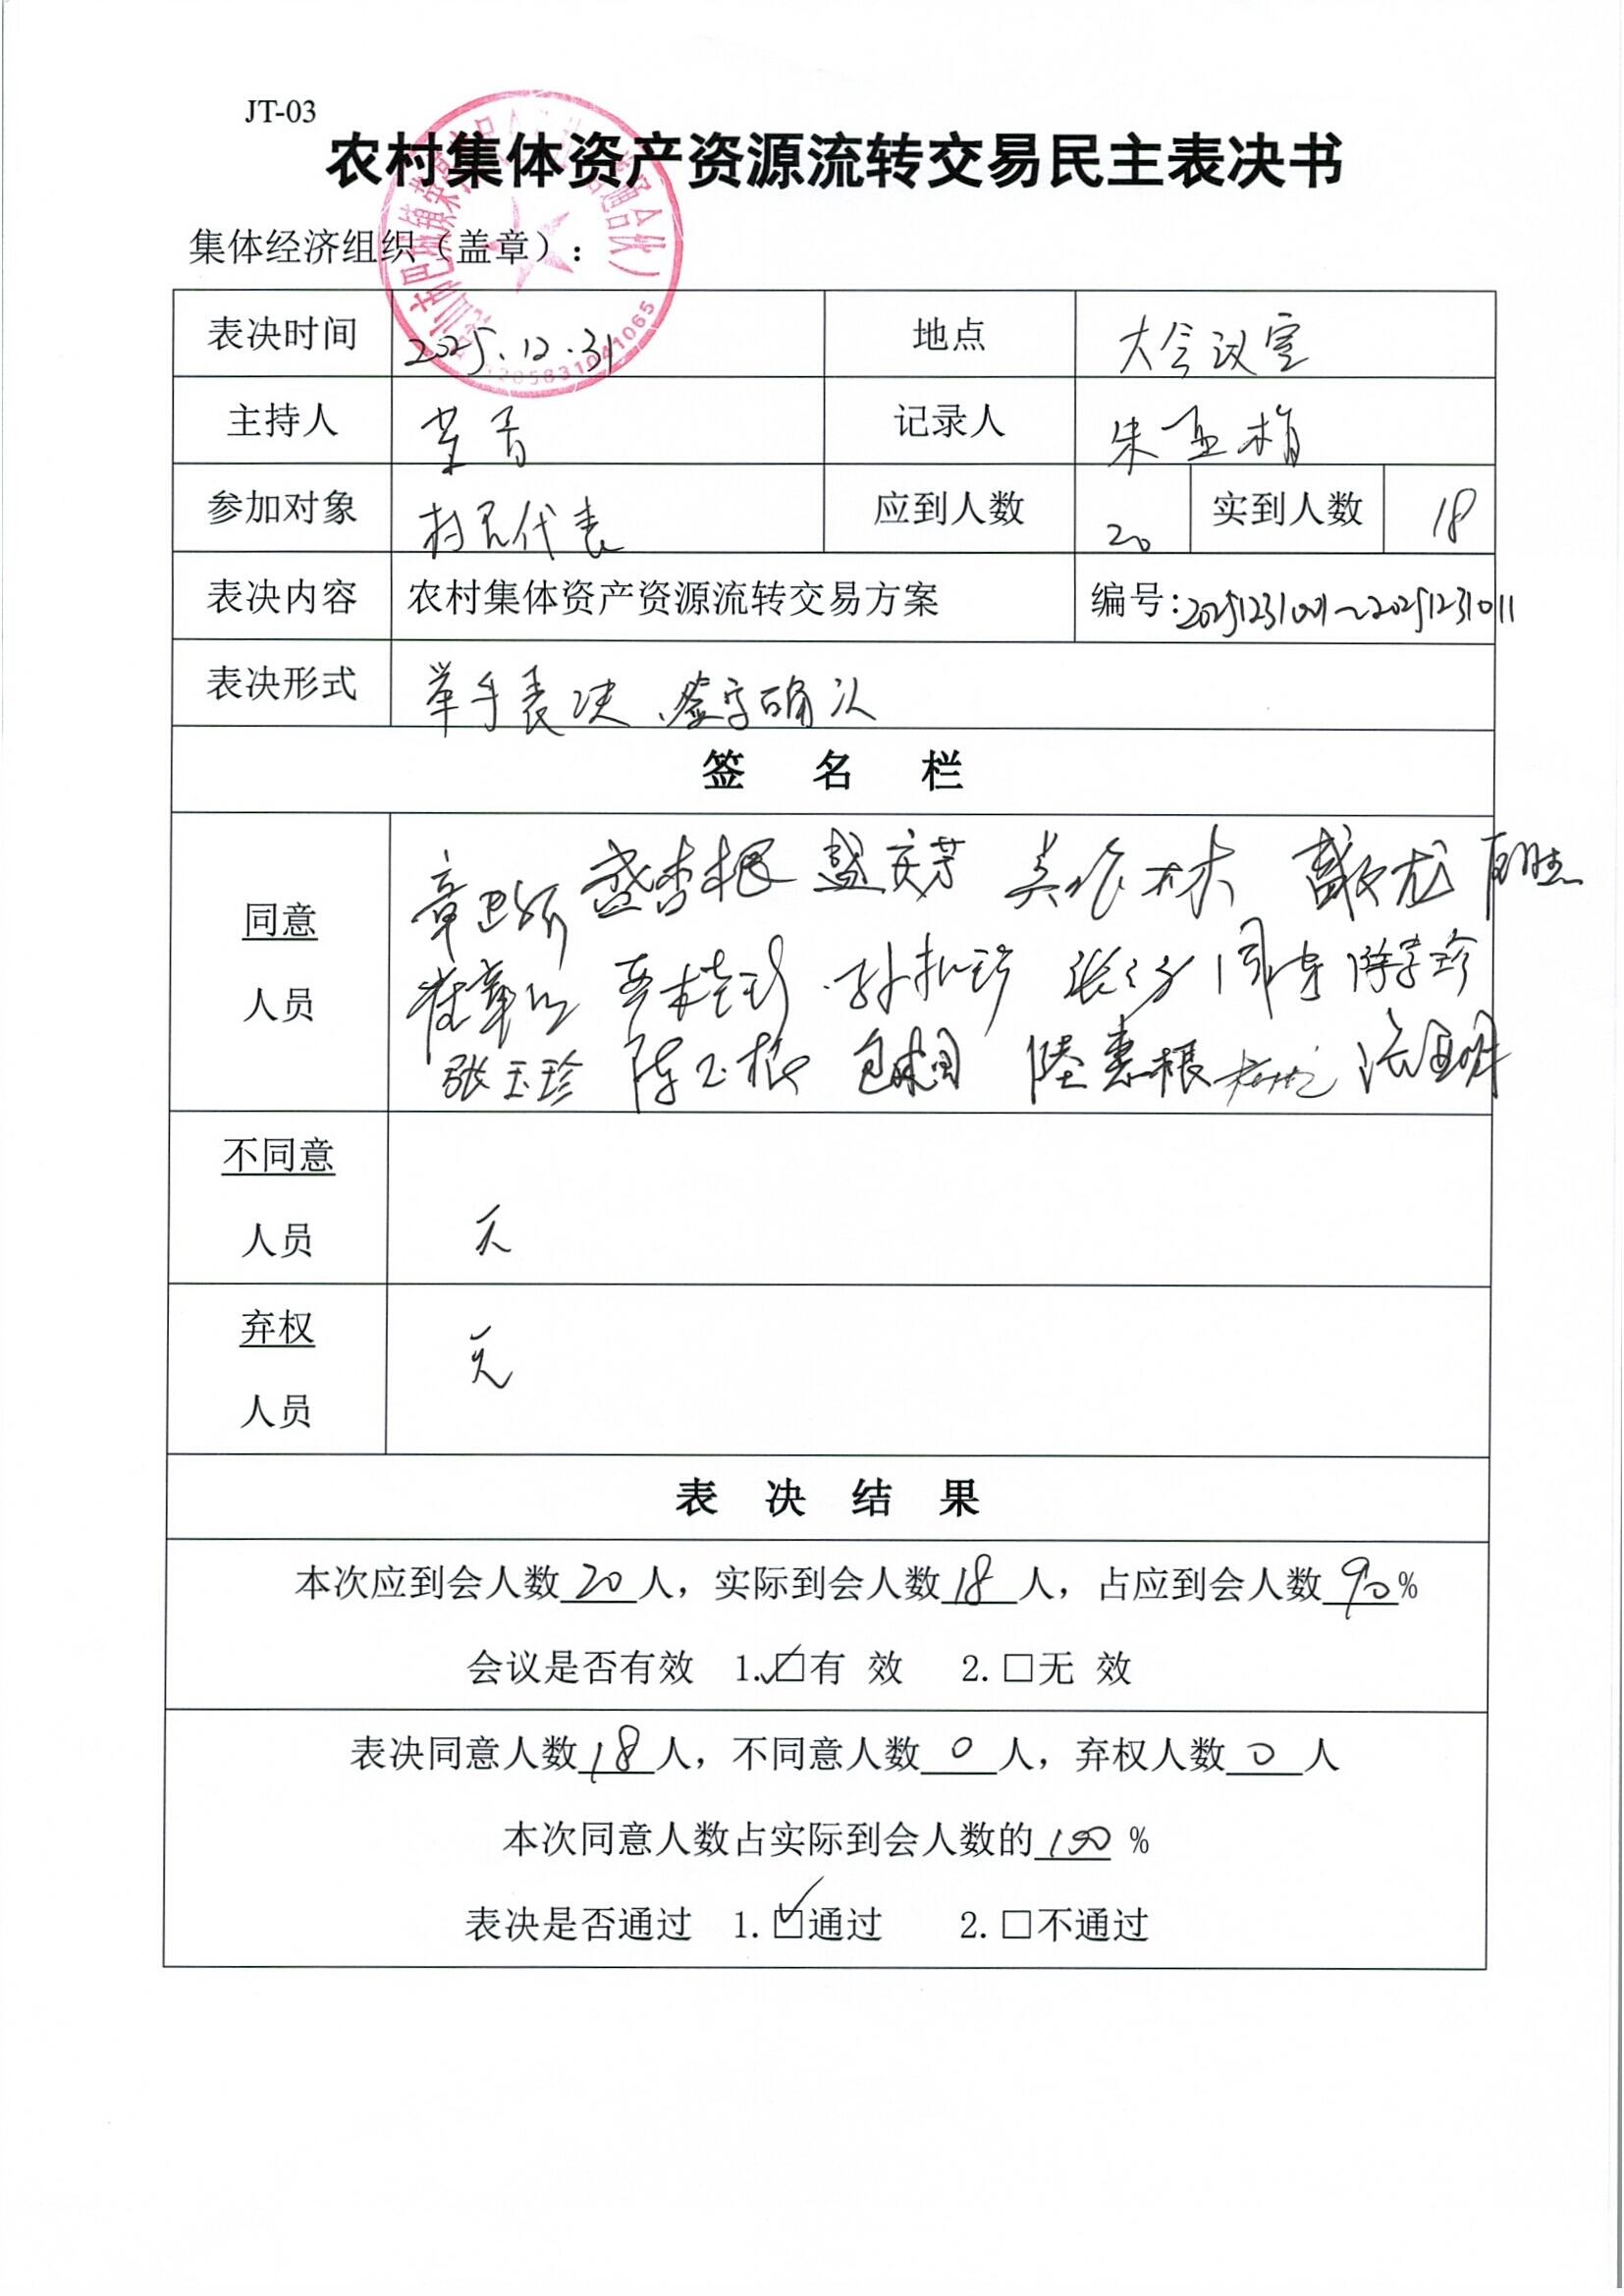 JT-03
农村集体资产资源流转交易民主表决书
集体经济组织（盖章）：
表决时间 2025.12.31 地点 大会议室
主持人 记录人 朱
参加对象 村民代表 应到人数 20 实到人数 18
表决内容 农村集体资产资源流转交易方案 编号:20251231001~20251231011
表决形式 举手表决、签字确认
签 名 栏
同意
人员
盛杏根 盛文芳
孙扣珍
张玉珍 陈玉根 陆惠根
不同意
人员 无
弃权
人员 无
表 决 结 果
本次应到会人数20人，实际到会人数18人，占应到会人数90%
会议是否有效 1.☑有 效 2.□无 效
表决同意人数18人，不同意人数0人，弃权人数0人
本次同意人数占实际到会人数的100%
表决是否通过 1.☑通过 2.□不通过